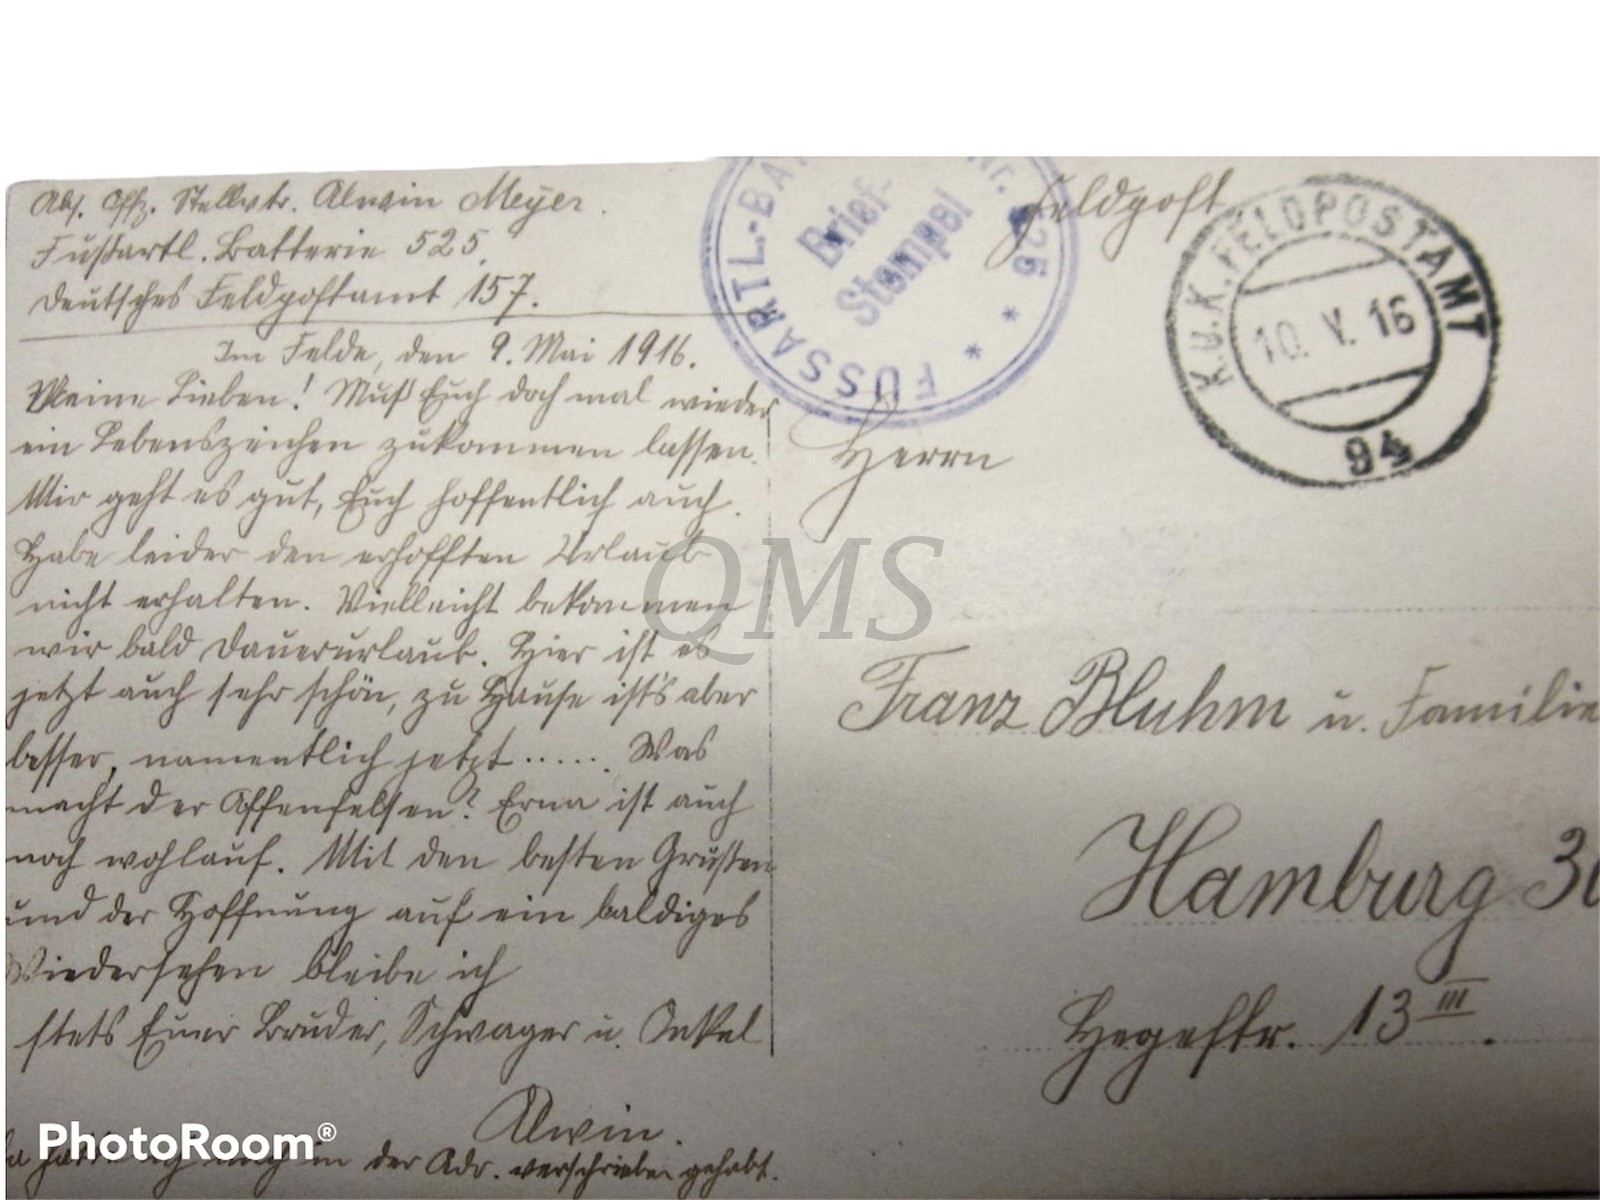 Abs. Offz. Stellvtr. Alwin Meyer.
Fußartl. Batterie 525.
Deutsches Feldpostamt 157.
Im Felde, den 9. Mai 1916.
Meine Lieben! Muß Euch doch mal wieder
ein Lebenszeichen zukommen lassen.
Mir geht es gut, Euch hoffentlich auch.
Habe leider den erhofften Urlaub
nicht erhalten. Vielleicht bekommen
wir bald Dauerurlaub. Hier ist es
jetzt auch sehr schön, zu Hause ist's aber
besser, namentlich jetzt ..... Was
macht der Affenfelsen? Erna ist auch
noch wohlauf. Mit den besten Grüßen
und der Hoffnung auf ein baldiges
Wiedersehen bleibe ich
stets Euer Bruder, Schwager u. Onkel
Alwin.
in der Adr. verschrieben gehabt.
FUSSARTL.-BAT Nr. 525
Brief-
Stempel
Feldpost
K.u.K. FELDPOSTAMT
10. V. 16
94
Herrn
Franz Bluhm u. Familie
Hamburg
Hegestr. 13 III.
QMS
PhotoRoom®